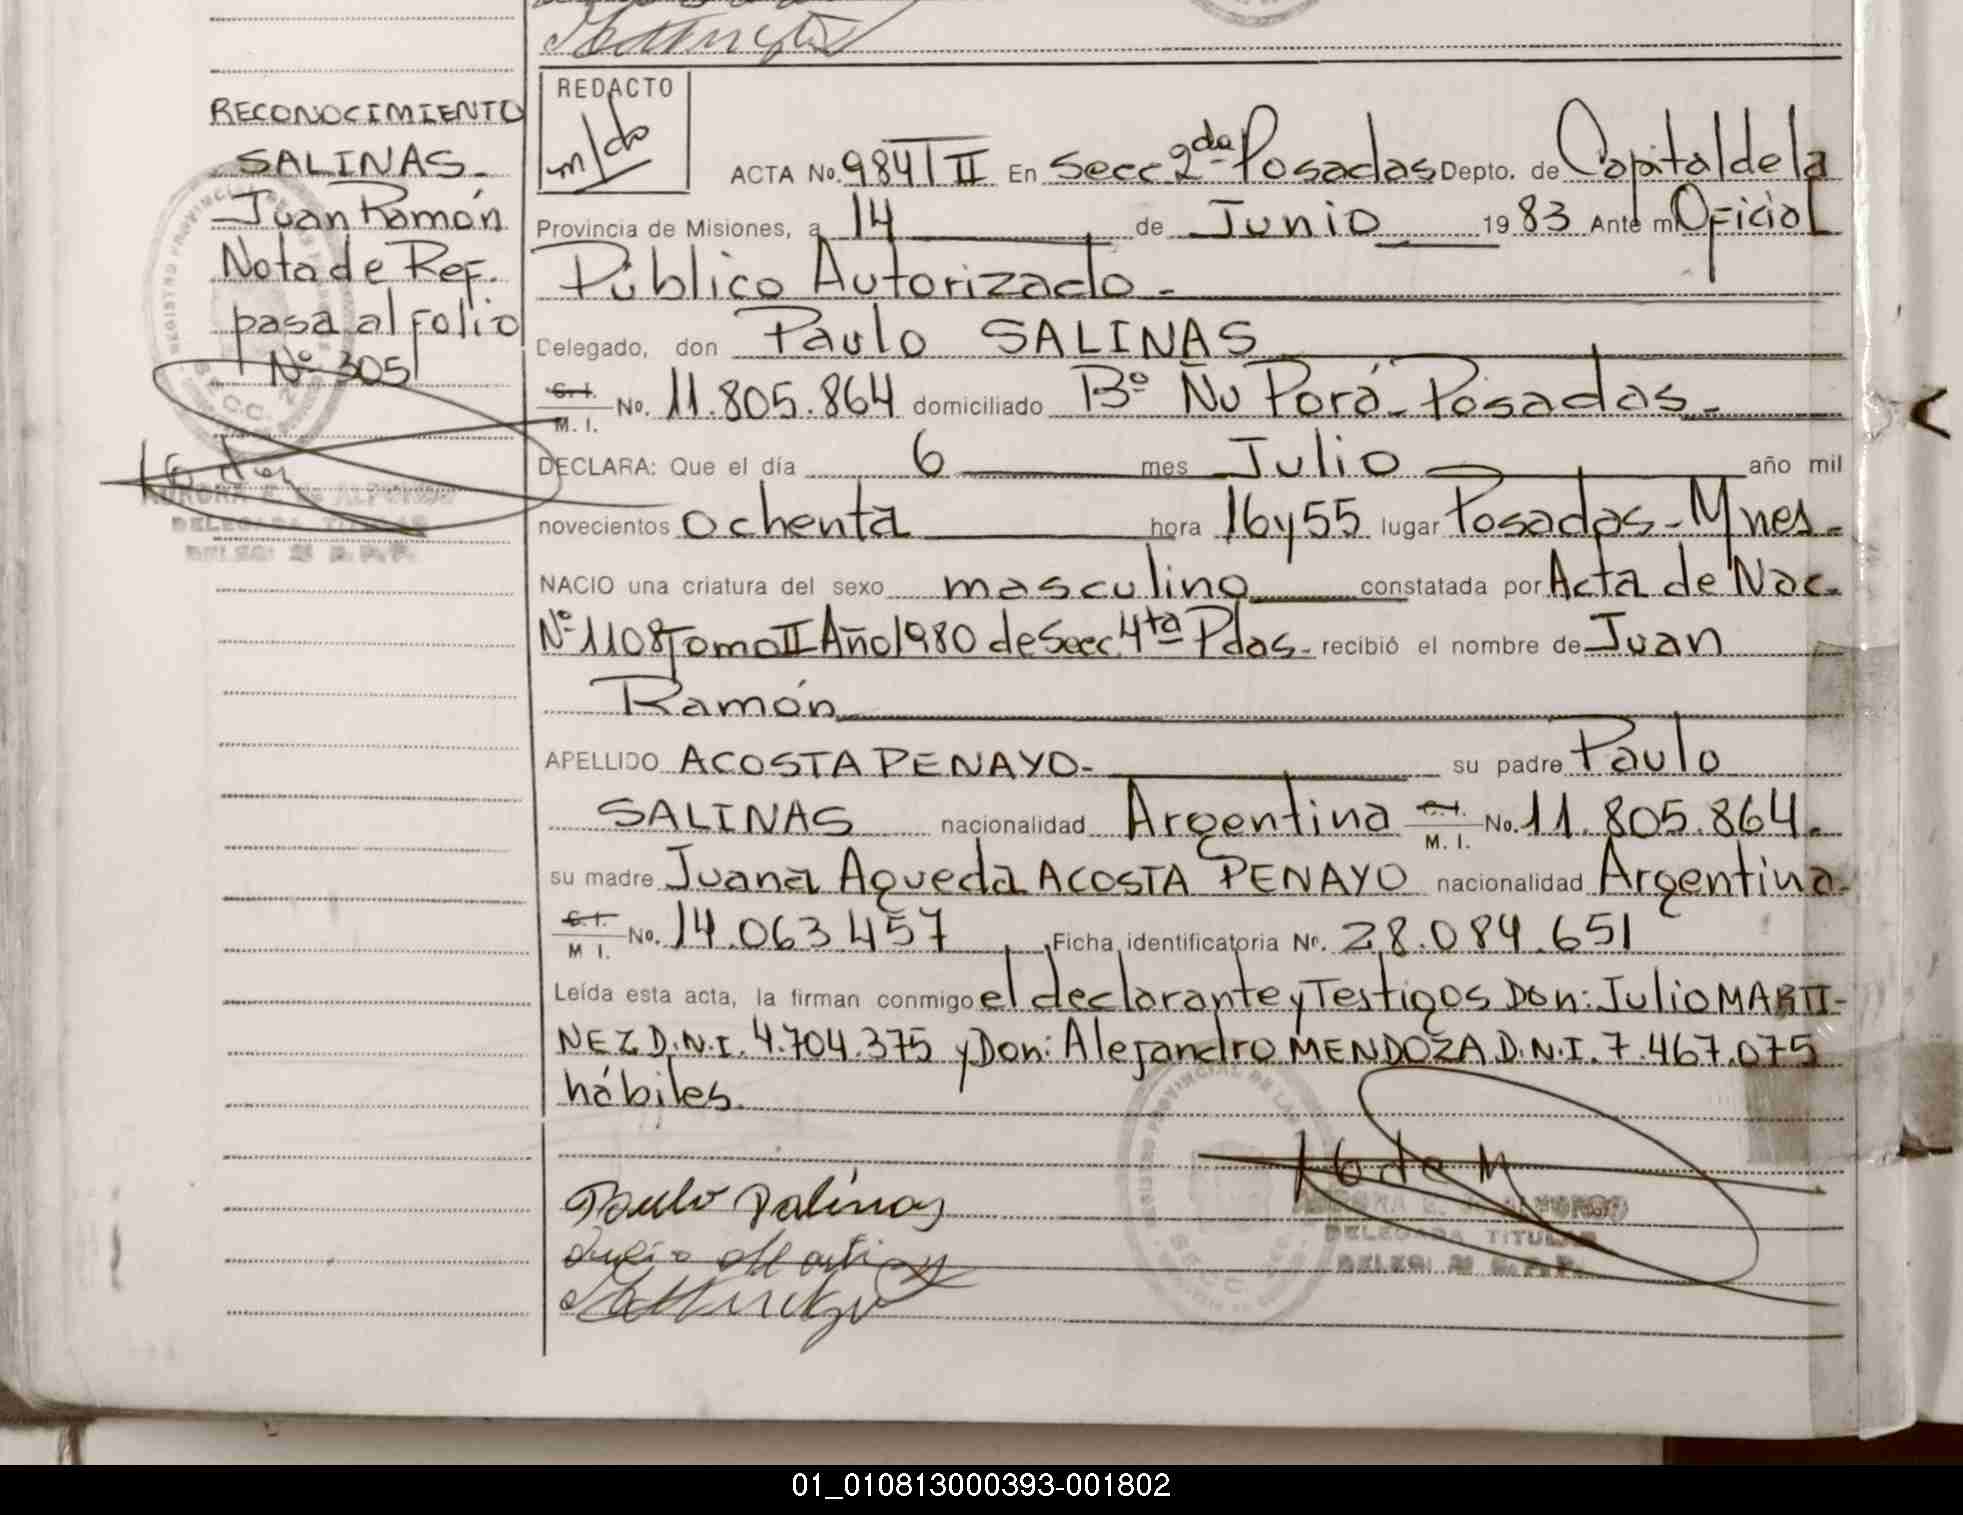 RECONOCIMIENTO
SALINAS.
Juan Ramón
Nota de Ref.
pasa al folio
Nº 305
DELEGADA TITULAR
REDACTO
ACTA No. 984 T II En Secc 2da Posadas Depto. de Capital de la
Provincia de Misiones, a 14 de Junio 19 83 Ante mi Oficial
Público Autorizado.
Delegado, don Paulo SALINAS
C.I. M. I. No. 11.805.864 domiciliado Bº Ñu Porá - Posadas.
DECLARA: Que el día 6 mes Julio año mil
novecientos ochenta hora 16 y 55 lugar Posadas - Mnes.
NACIO una criatura del sexo masculino constatada por Acta de Nac.
Nº 1108 Tomo II Año 1980 de Secc. 4ta Pdas. recibió el nombre de Juan
Ramón
APELLIDO ACOSTA PENAYO- su padre Paulo
SALINAS nacionalidad Argentina C.I. M. I. No. 11.805.864.
su madre Juana Agueda ACOSTA PENAYO nacionalidad Argentina.
C.I. M I. No. 14.063.457 Ficha identificatoria Nº. 28.084.651
Leída esta acta, la firman conmigo el declarante y Testigos Don: Julio MARTI-
NEZ D.N.I. 4.704.375 y Don: Alejandro MENDOZA D.N.I. 7.467.075
hábiles.
Paulo Salinas
DELEGADA TITULAR
01_010813000393-001802